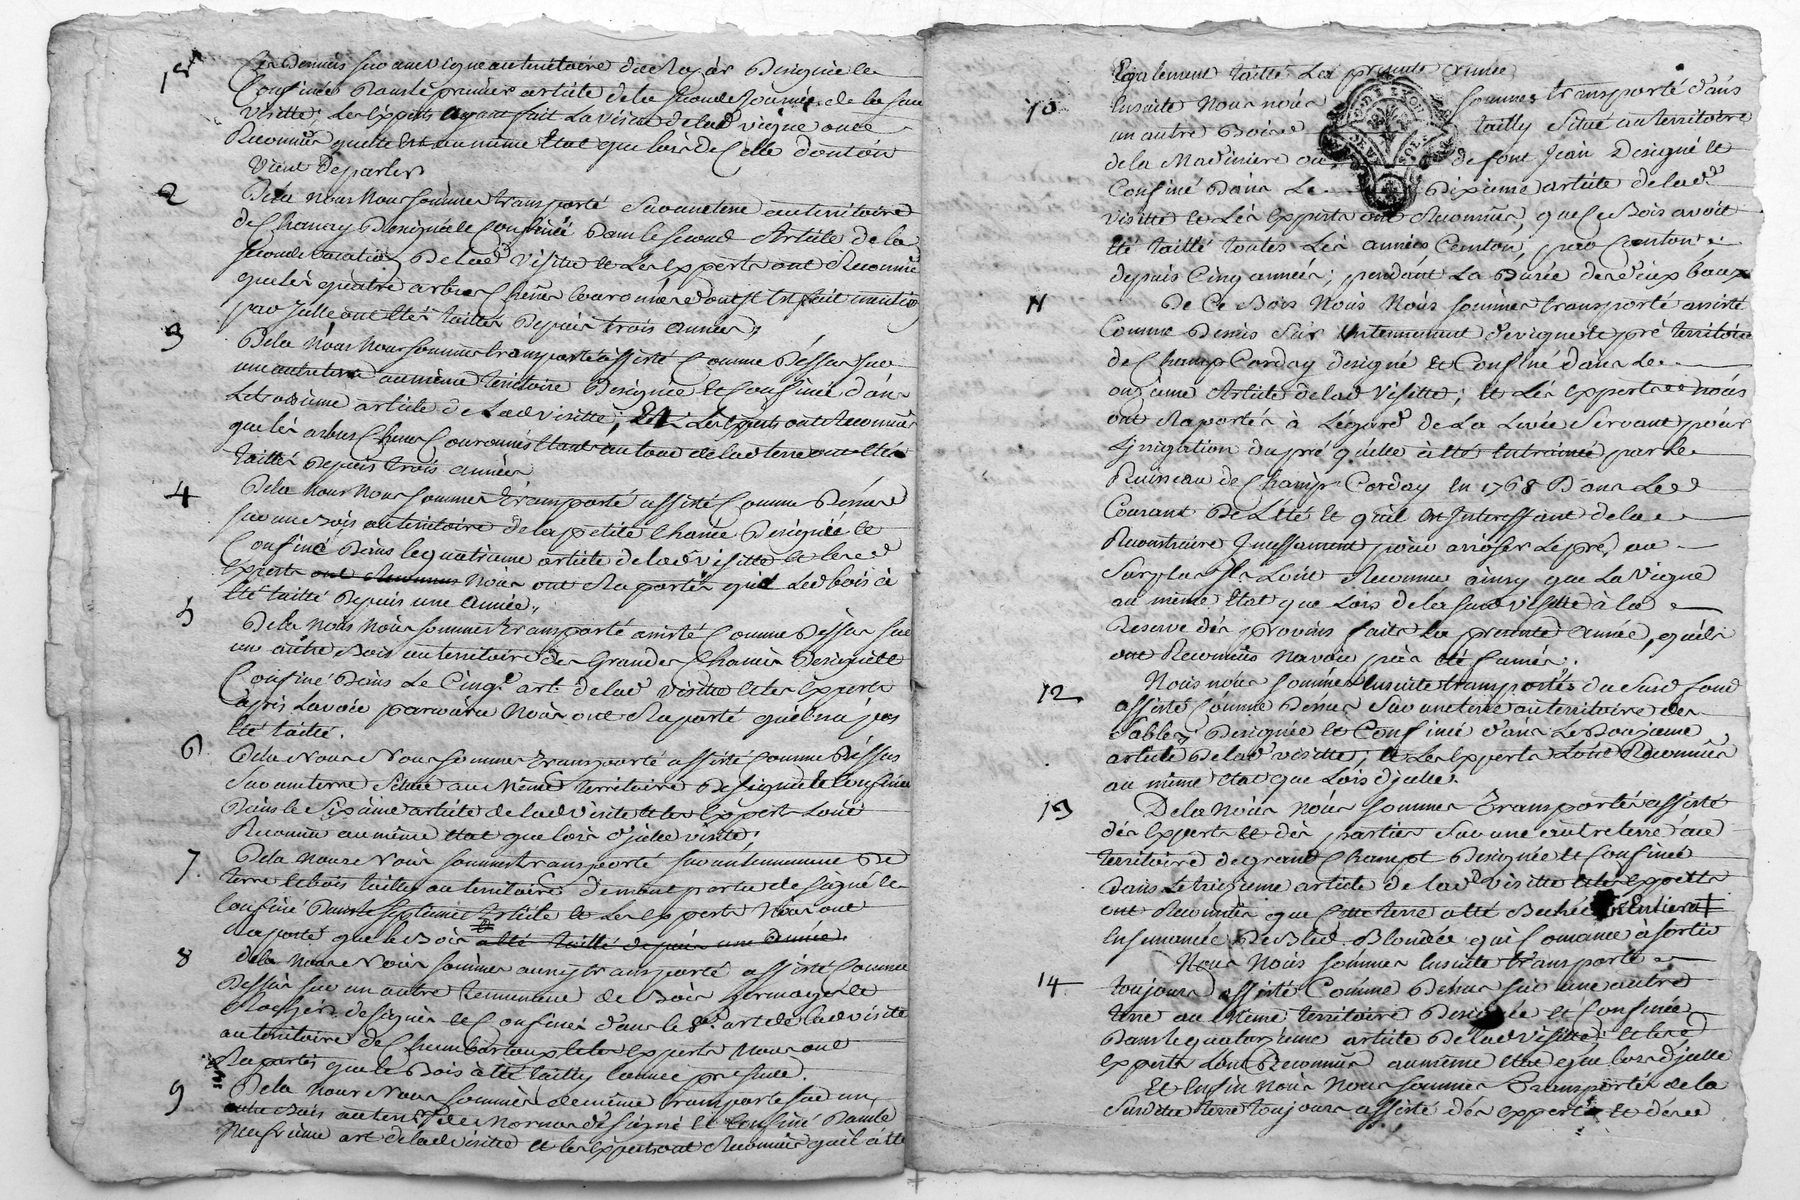 1er
et Demis sur une vigne au territoire du Designée et
Confinée Dans le premier article de la seconde Journée de la sue
Visitte; Les Experts ayant fait La visite de lad vigne ont
Reconnus quelle Est au même Etat que lors de Celle dont on
Vient de parler
2
Déla Nous Nous sommes transporté sur une terre au territoire
de Chanay Designée et Confinée Dans le second Article de la
seconde vacation De lad Visitte et Les Experts ont Reconnus
que les quatre arbres Chênes Couronnés dont Il Est fait mention
par Icelle ont Etés taillés Depuis trois années,
3
De la Nous Nous sommes transporté assisté Comme Déssus sur
une autre terre au même territoire Designée et Confinée dans
Le troisième article de Lad visitte; Et Les Experts ont Reconnus
que les arbres Chênes Couronnés Etant au tour de lad terre ont Etés
taillés Depuis trois années
4
De la Nous Nous sommes transporté assisté Comme Dessus
sur un Bois au territoire de la petite Chanée Designée et
Confiné Dans le quatrieme article de lad visitte et lesd
Experts ont Reconnus Nous ont Raportés que Led bois à
Eté taillé Depuis une année,,
5
De la Nous Nous sommes transporté assisté Comme Dessus sur
un autre Bois au territoire des Grandes Chanées Designé et
Confiné Dans Le Cinqe art de lad visitte et les Experts
après Lavoir parcouru Nous ont Raporté quil na pas
Eté taillé.
6
De la Nous Nous sommes transporté assisté Comme Déssus
sur une terre située au Même territoire Designée et Confinée
Dans le Sixième article de lad visite et les Experts Lont
Reconnue au même Etat que lors d'jcelle visite,
7
De la Nous Nous sommes transporté sur un tennement De
terre et bois taillis au territoire de mont designé et
Confiné Dans le septieme Article et Les Experts Nous ont
Raporté que le Bois a été taillé depuis une année.
8
dela Nous Nous sommes aussy transporté assisté Comme
Dessus sur un autre tennement de Bois et
Rochers designés et Confinés dans le 8e art de lad visite
au territoire de et les Experts Nous ont
Raportés que le Bois a été tailly lannée presente.
9
De la Nous Nous sommes de même transporté sur un
autre Bois au terre de designé et Confiné Dans le
Neufvieme art de lad visitte et les Experts ont Reconnus quil a été
Egalement taillé La presente année
10
Ensuite Nous nous sommes transporté dans
un autre Bois tailly Situé au territoire
de la Madiniere ou de font Jean Designé et
Confiné Dans Le Dixieme article de lad
visitte et Les Experts ont Reconnus, que Ce Bois avoit
été taillé toutes Les années Canton, par Canton
depuis Cinq années; pendant La Durée des dix baux
11
De Ce Bois Nous Nous sommes transporté assisté
Comme Dessus Sur Un tennement de vigne et pré territoire
de Champ Corday designé et Confiné dans Le
onzieme Article de lad Visitte; et Les Experts nous
ont Raportés à Légard de La Levée Servant pour
Ljrrigation du pré quelle à été Entrainée par Le
Ruisseau de Champ Corday en 1768 Dans Le
Courant De Lété et quil Est Interessant de la
Reconstruire Jncessament pour arroser Le pré, au
Surplus Ils Lont Reconnu ainsy que La Vigne
au même Etat que Lors de la sud visitte à la
Reserve des provins faits la presente année, quils
ont Reconnus navoir pas été fumés.
12
Nous nous sommes Ensuite transportés du Susd fond
assisté Comme Dessus Sur une terre au territoire des
Sables, Designée et Confinée dans Le Douzieme
article De lad visitte; et Les Experts Lont Reconnus
au même Etat que Lors d'jcelle.
13
De la Nous Nous sommes transportés assisté
des Experts et des parties sur une autre terre au
territoire de grand Champt Designée et Confinée
Dans Le treizieme article de lad visitte et les Experts
ont Reconnus que Cette terre a été Entierat
Ensemencée De Bled Blondée qui Comance a sortir
14
Nous Nous sommes Ensuite transporté
toujours assisté Comme Dessus sur une autre
terre au Même territoire Designée et Confinée
Dans le quatorzieme article De lad visitte; et les
Experts Lont Reconnus au même Etat que lors djcelle
Et Enfin Nous Nous sommes transportés de la
Susditte terre toujours assisté des Experts et des